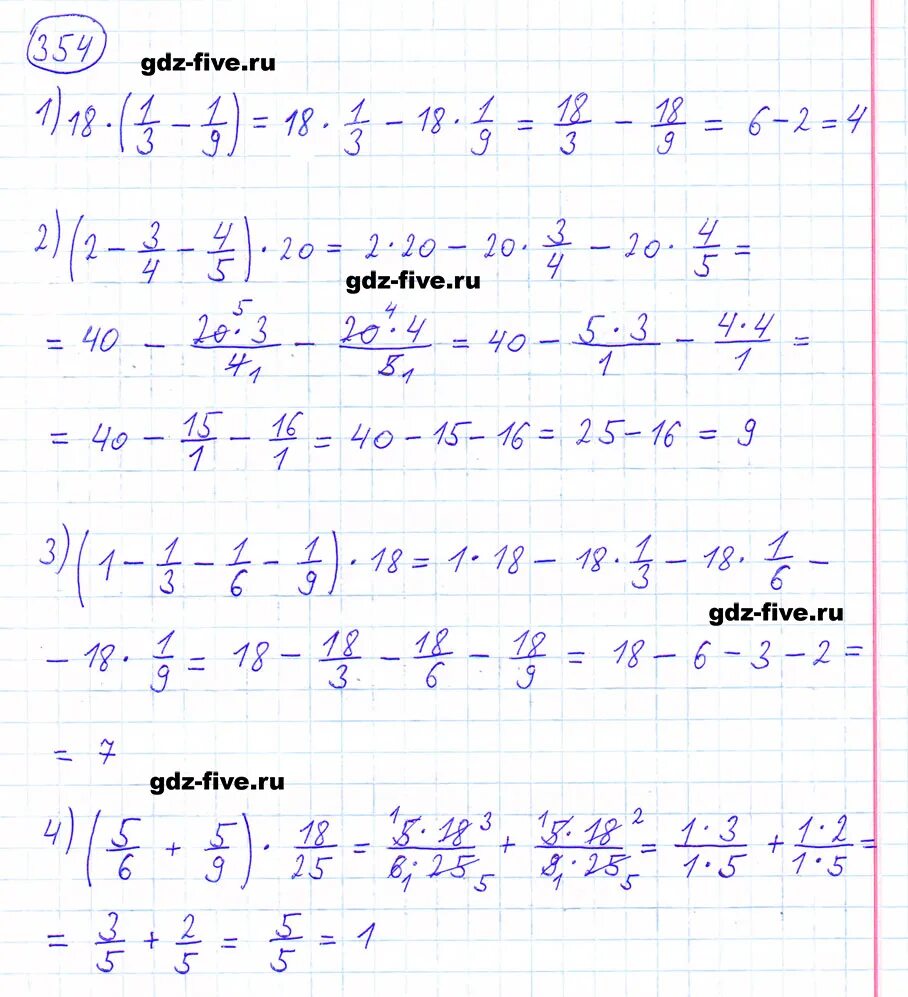 354
gdz-five.ru
1) 18 · (1/3 − 1/9) = 18 · 1/3 − 18 · 1/9 = 18/3 − 18/9 = 6 − 2 = 4
2) (2 − 3/4 − 4/5) · 20 = 2 · 20 − 20 · 3/4 − 20 · 4/5 =
gdz-five.ru
= 40 − 20 5 · 3 / 4 1 − 20 4 · 4 / 5 1 = 40 − 5 · 3 / 1 − 4 · 4 / 1 =
= 40 − 15/1 − 16/1 = 40 − 15 − 16 = 25 − 16 = 9
3) (1 − 1/3 − 1/6 − 1/9) · 18 = 1 · 18 − 18 · 1/3 − 18 · 1/6 −
gdz-five.ru
− 18 · 1/9 = 18 − 18/3 − 18/6 − 18/9 = 18 − 6 − 3 − 2 =
= 7
gdz-five.ru
4) (5/6 + 5/9) · 18/25 = 1 5 · 18 3 / 6 1 · 25 5 + 1 5 · 18 2 / 9 1 · 25 5 = 1 · 3 / 1 · 5 + 1 · 2 / 1 · 5 =
= 3/5 + 2/5 = 5/5 = 1